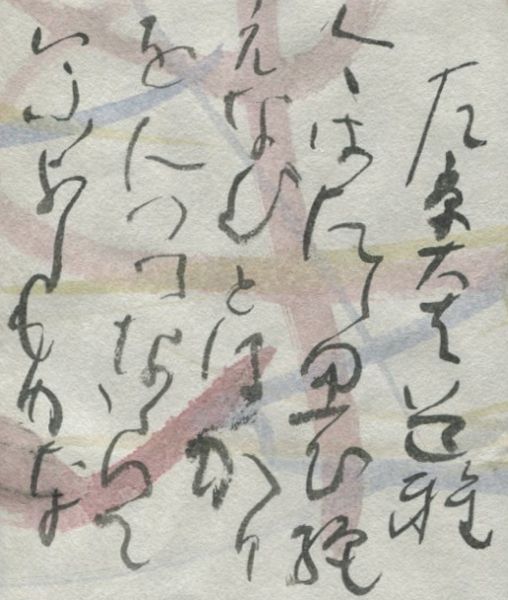 左京大夫道雅
今はたゝ思ひ絶
えなむとはかり
を人つてならて
いふよしもかな